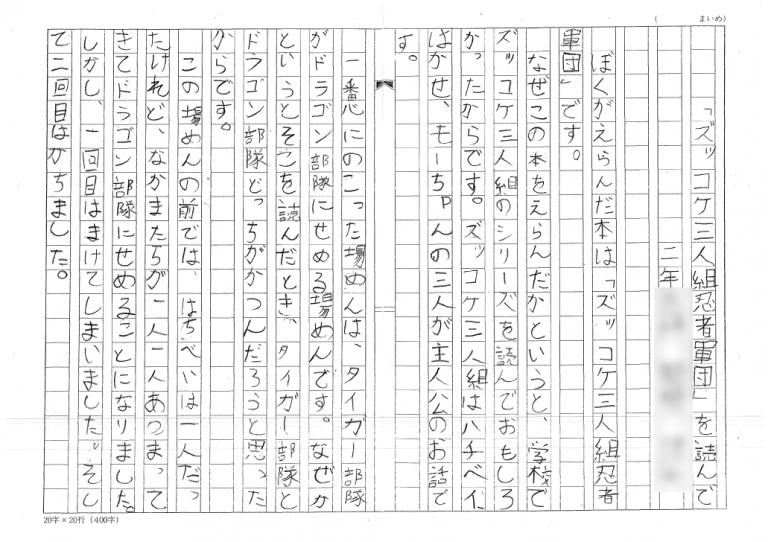 (　まいめ)
「ズッコケ三人組忍者軍団」を読んで
二年
ぼくがえらんだ本は「ズッコケ三人組忍者
軍団」です。
なぜこの本をえらんだかというと、学校で
ズッコケ三人組のシリーズを読んでおもしろ
かったからです。ズッコケ三人組はハチベイに
はかせ、モーちゃんの三人が主人公のお話で
す。
一番心にのこった場めんは、タイガー部隊
がドラゴン部隊にせめる場めんです。なぜか
というとそこを読んだとき、タイガー部隊と
ドラゴン部隊どっちがかつんだろうと思った
からです。
この場めんの前では、はちべいは一人だっ
たけれど、なかまたちが一人一人あつまって
きてドラゴン部隊にせめることになりました。
しかし、一回目はまけてしまいました。そし
て二回目はかちました。
20字×20行（400字）